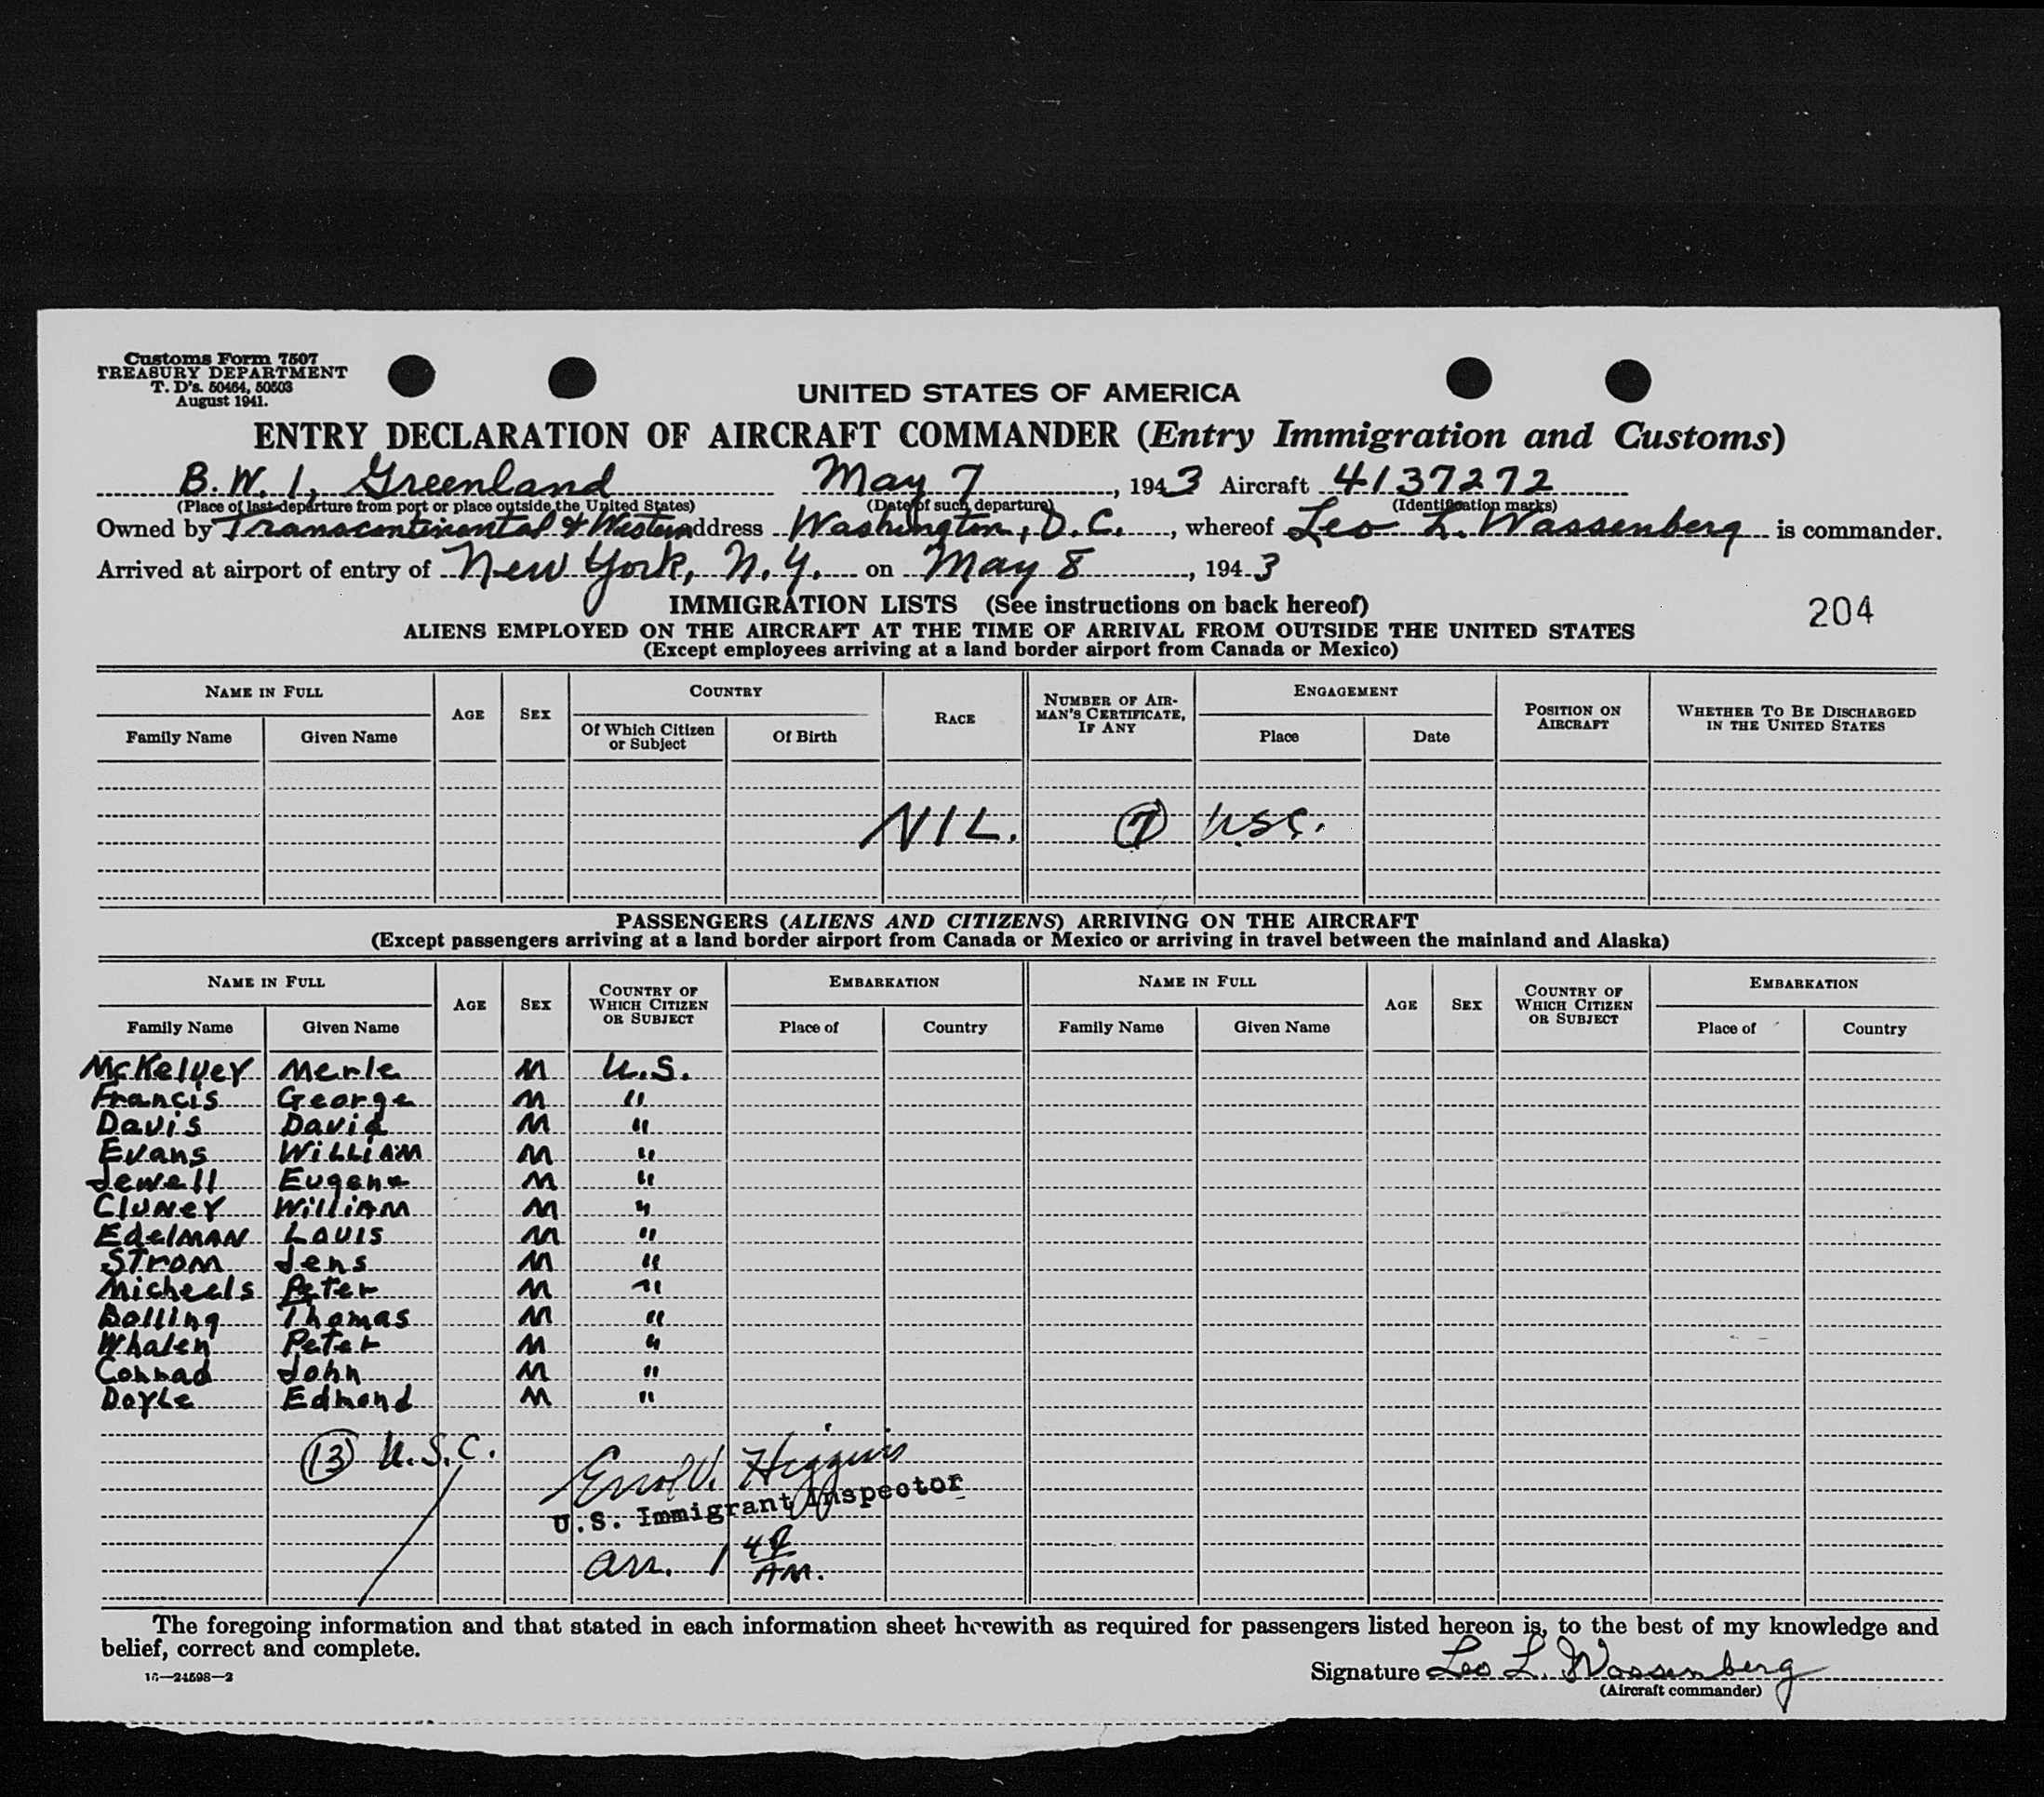 Customs Form 7507
TREASURY DEPARTMENT
T. D's. 50464, 50503
August 1941.
UNITED STATES OF AMERICA
ENTRY DECLARATION OF AIRCRAFT COMMANDER (Entry Immigration and Customs)
B.W. 1, Greenland May 7, 1943 Aircraft 4137272
(Place of last departure from port or place outside the United States) (Date of such departure) (Identification marks)
Owned by Transcontinental & Western address Washington, D.C., whereof Leo L. Wassenberg is commander.
Arrived at airport of entry of New York, N.Y. on May 8, 1943
IMMIGRATION LISTS (See instructions on back hereof) 204
ALIENS EMPLOYED ON THE AIRCRAFT AT THE TIME OF ARRIVAL FROM OUTSIDE THE UNITED STATES
(Except employees arriving at a land border airport from Canada or Mexico)
NAME IN FULL AGE SEX COUNTRY RACE NUMBER OF AIRMAN'S CERTIFICATE, IF ANY ENGAGEMENT POSITION ON AIRCRAFT WHETHER TO BE DISCHARGED IN THE UNITED STATES
Family Name Given Name Of Which Citizen or Subject Of Birth Place Date
NIL. 7 USC.
PASSENGERS (ALIENS AND CITIZENS) ARRIVING ON THE AIRCRAFT
(Except passengers arriving at a land border airport from Canada or Mexico or arriving in travel between the mainland and Alaska)
NAME IN FULL AGE SEX COUNTRY OF WHICH CITIZEN OR SUBJECT EMBARKATION NAME IN FULL AGE SEX COUNTRY OF WHICH CITIZEN OR SUBJECT EMBARKATION
Family Name Given Name Place of Country Family Name Given Name Place of Country
McKelvey Merle M U.S.
Francis George M "
Davis David M "
Evans William M "
Jewell Eugene M "
Cluney William M "
Edelman Louis M "
Strom Jens M "
Micheels Peter M "
Bolling Thomas M "
Whalen Peter M "
Conrad John M "
Doyle Edmond M "
13 U.S.C.
Errol V. Higgins
U.S. Immigrant Inspector
arr. 1 49 AM.
The foregoing information and that stated in each information sheet herewith as required for passengers listed hereon is, to the best of my knowledge and
belief, correct and complete.
16—24598—2
Signature Leo L. Wassenberg
(Aircraft commander)